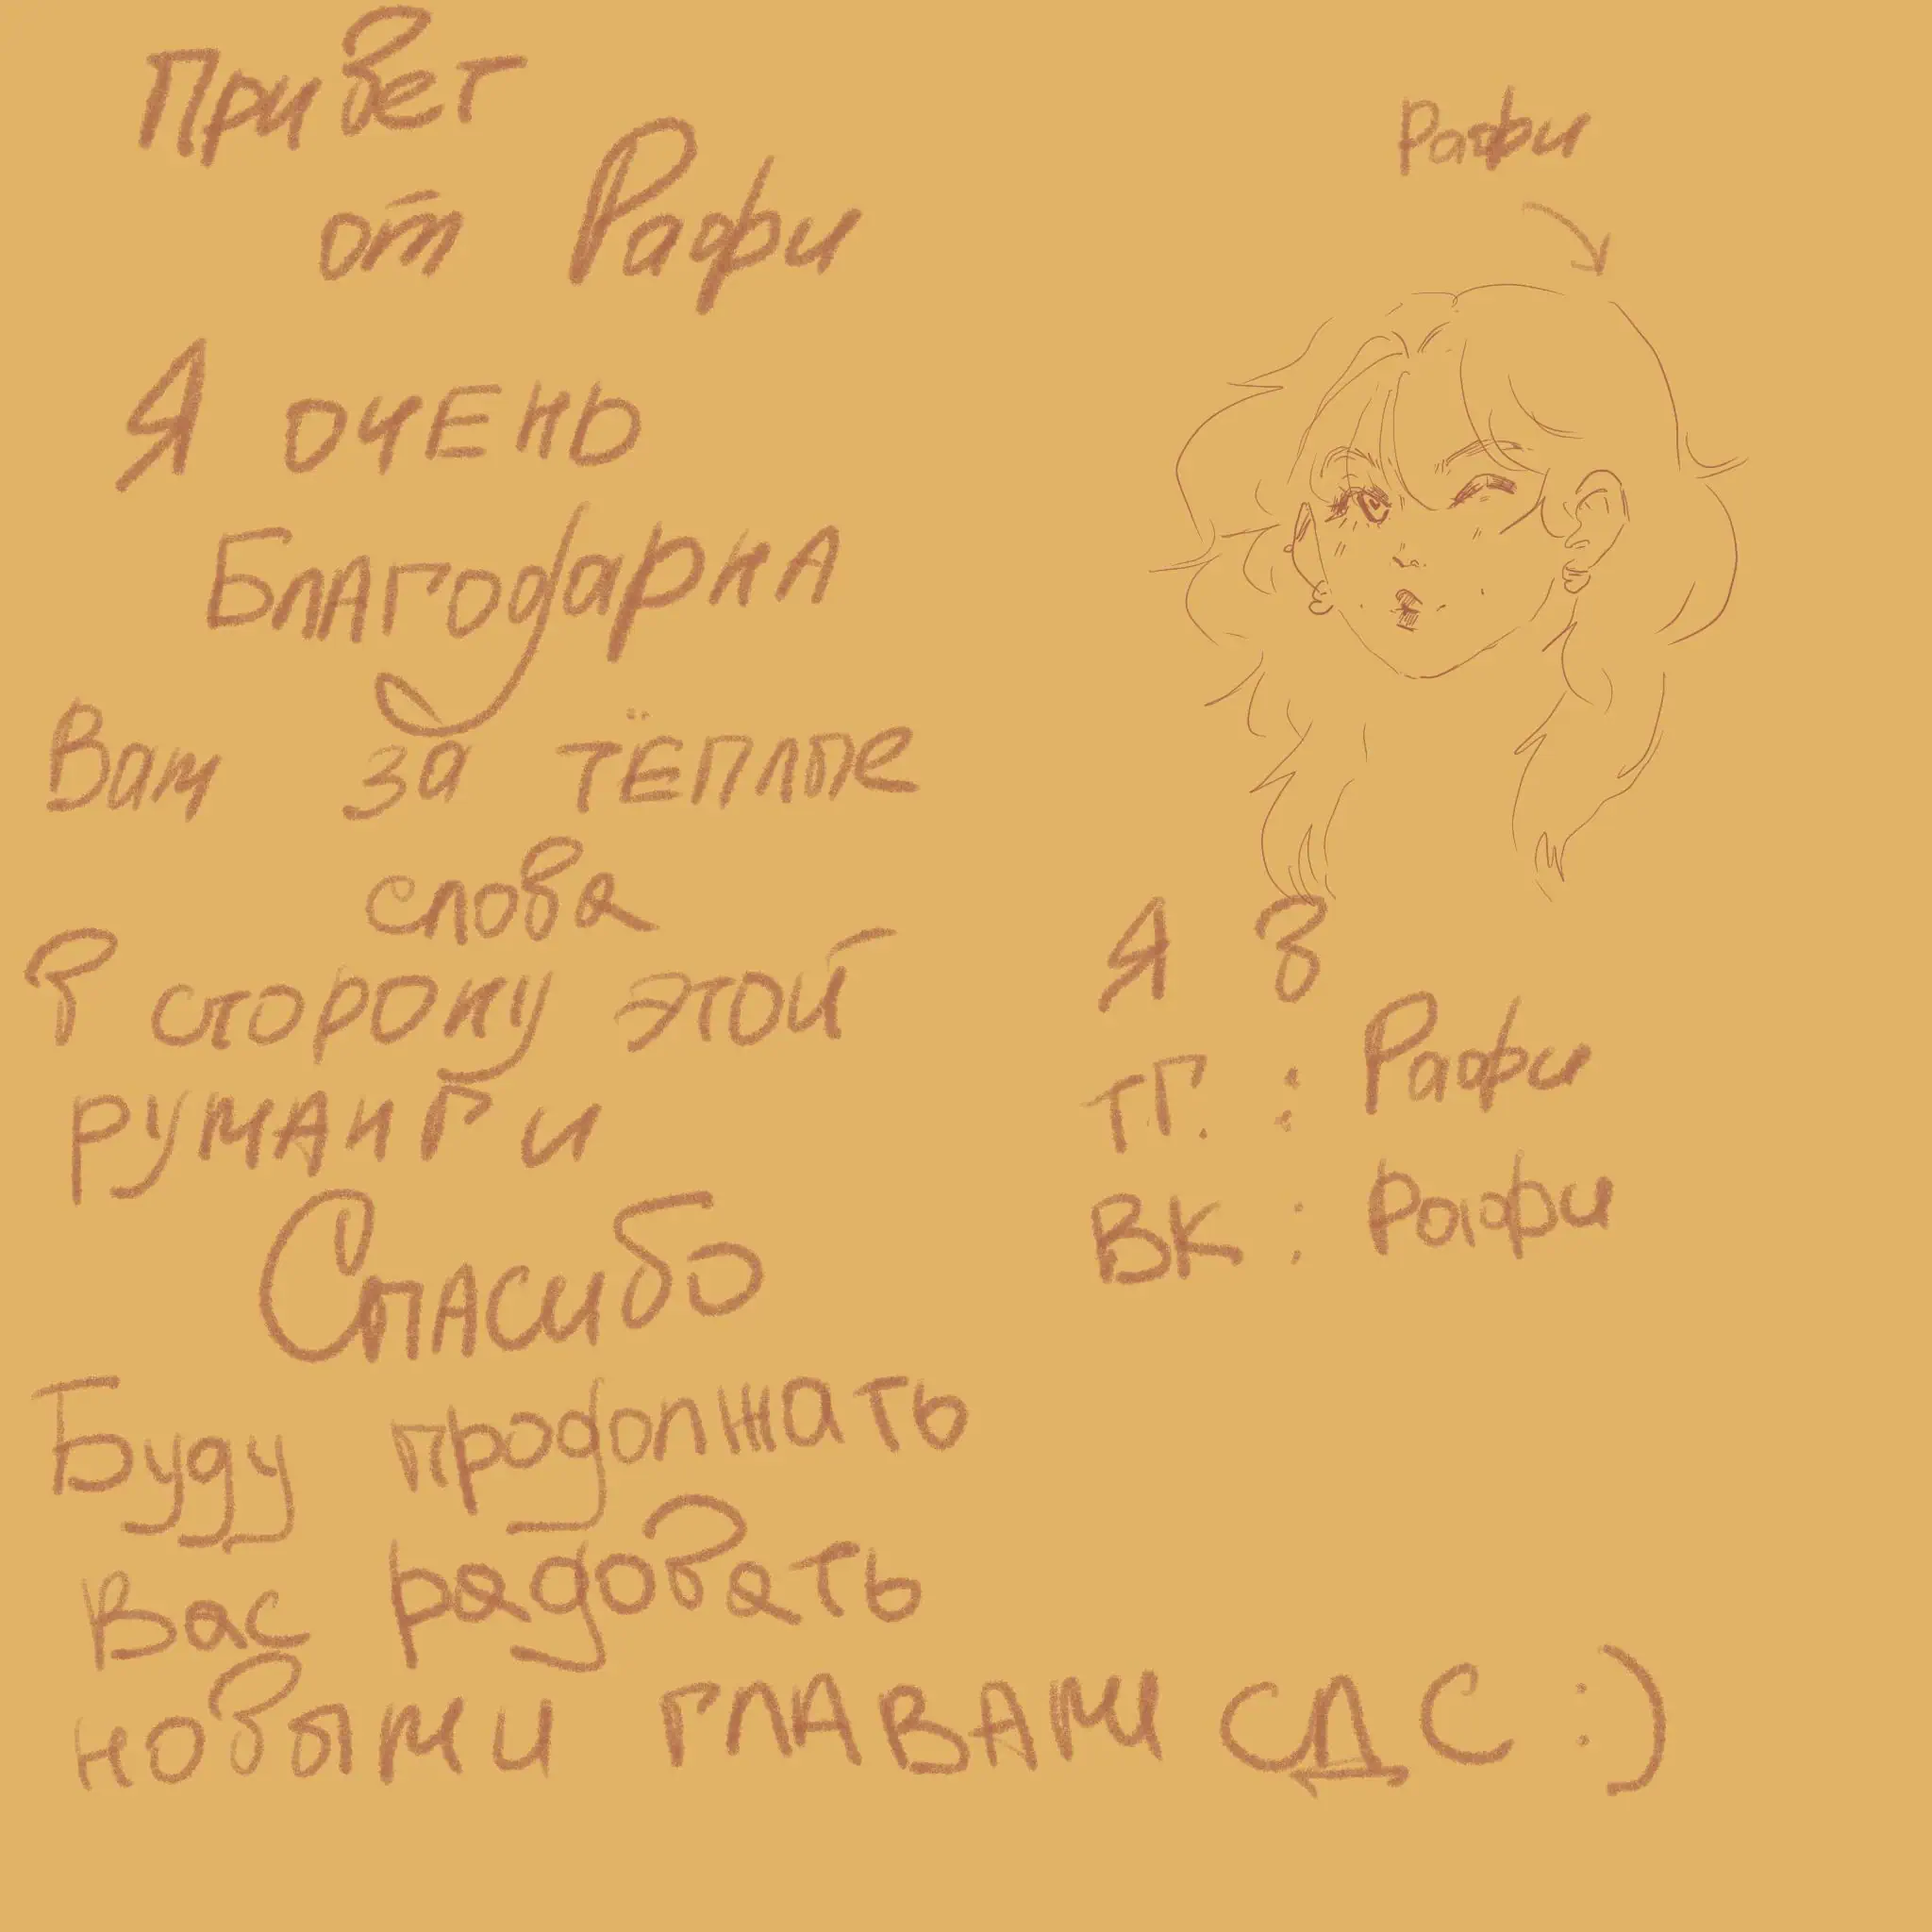 Привет
от Рафи
Я очень
Благодарна
Вам за тёплые
слова
в сторону этой
руманги
Спасибо
Буду продолжать
вас радовать
новыми главами СДС :)
Рафи
Я в
тг. : Рафи
ВК : Рафи